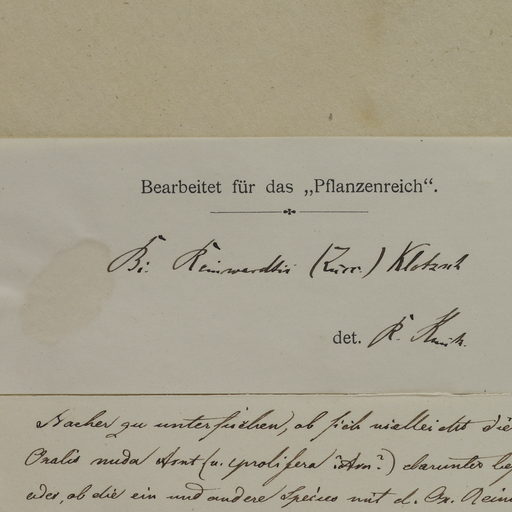 Bearbeitet für das „Pflanzenreich“.
Bi. Reinwardtii (Zucc.) Klotzsch
det. R. Knuth.
Nacher zu untersuchen, ob sich vielleicht die
Oxalis nuda Arnt (u. prolifera ?Arn.?) darunter be
oder, ob die ein und andere Species mit d. Ox. Rein